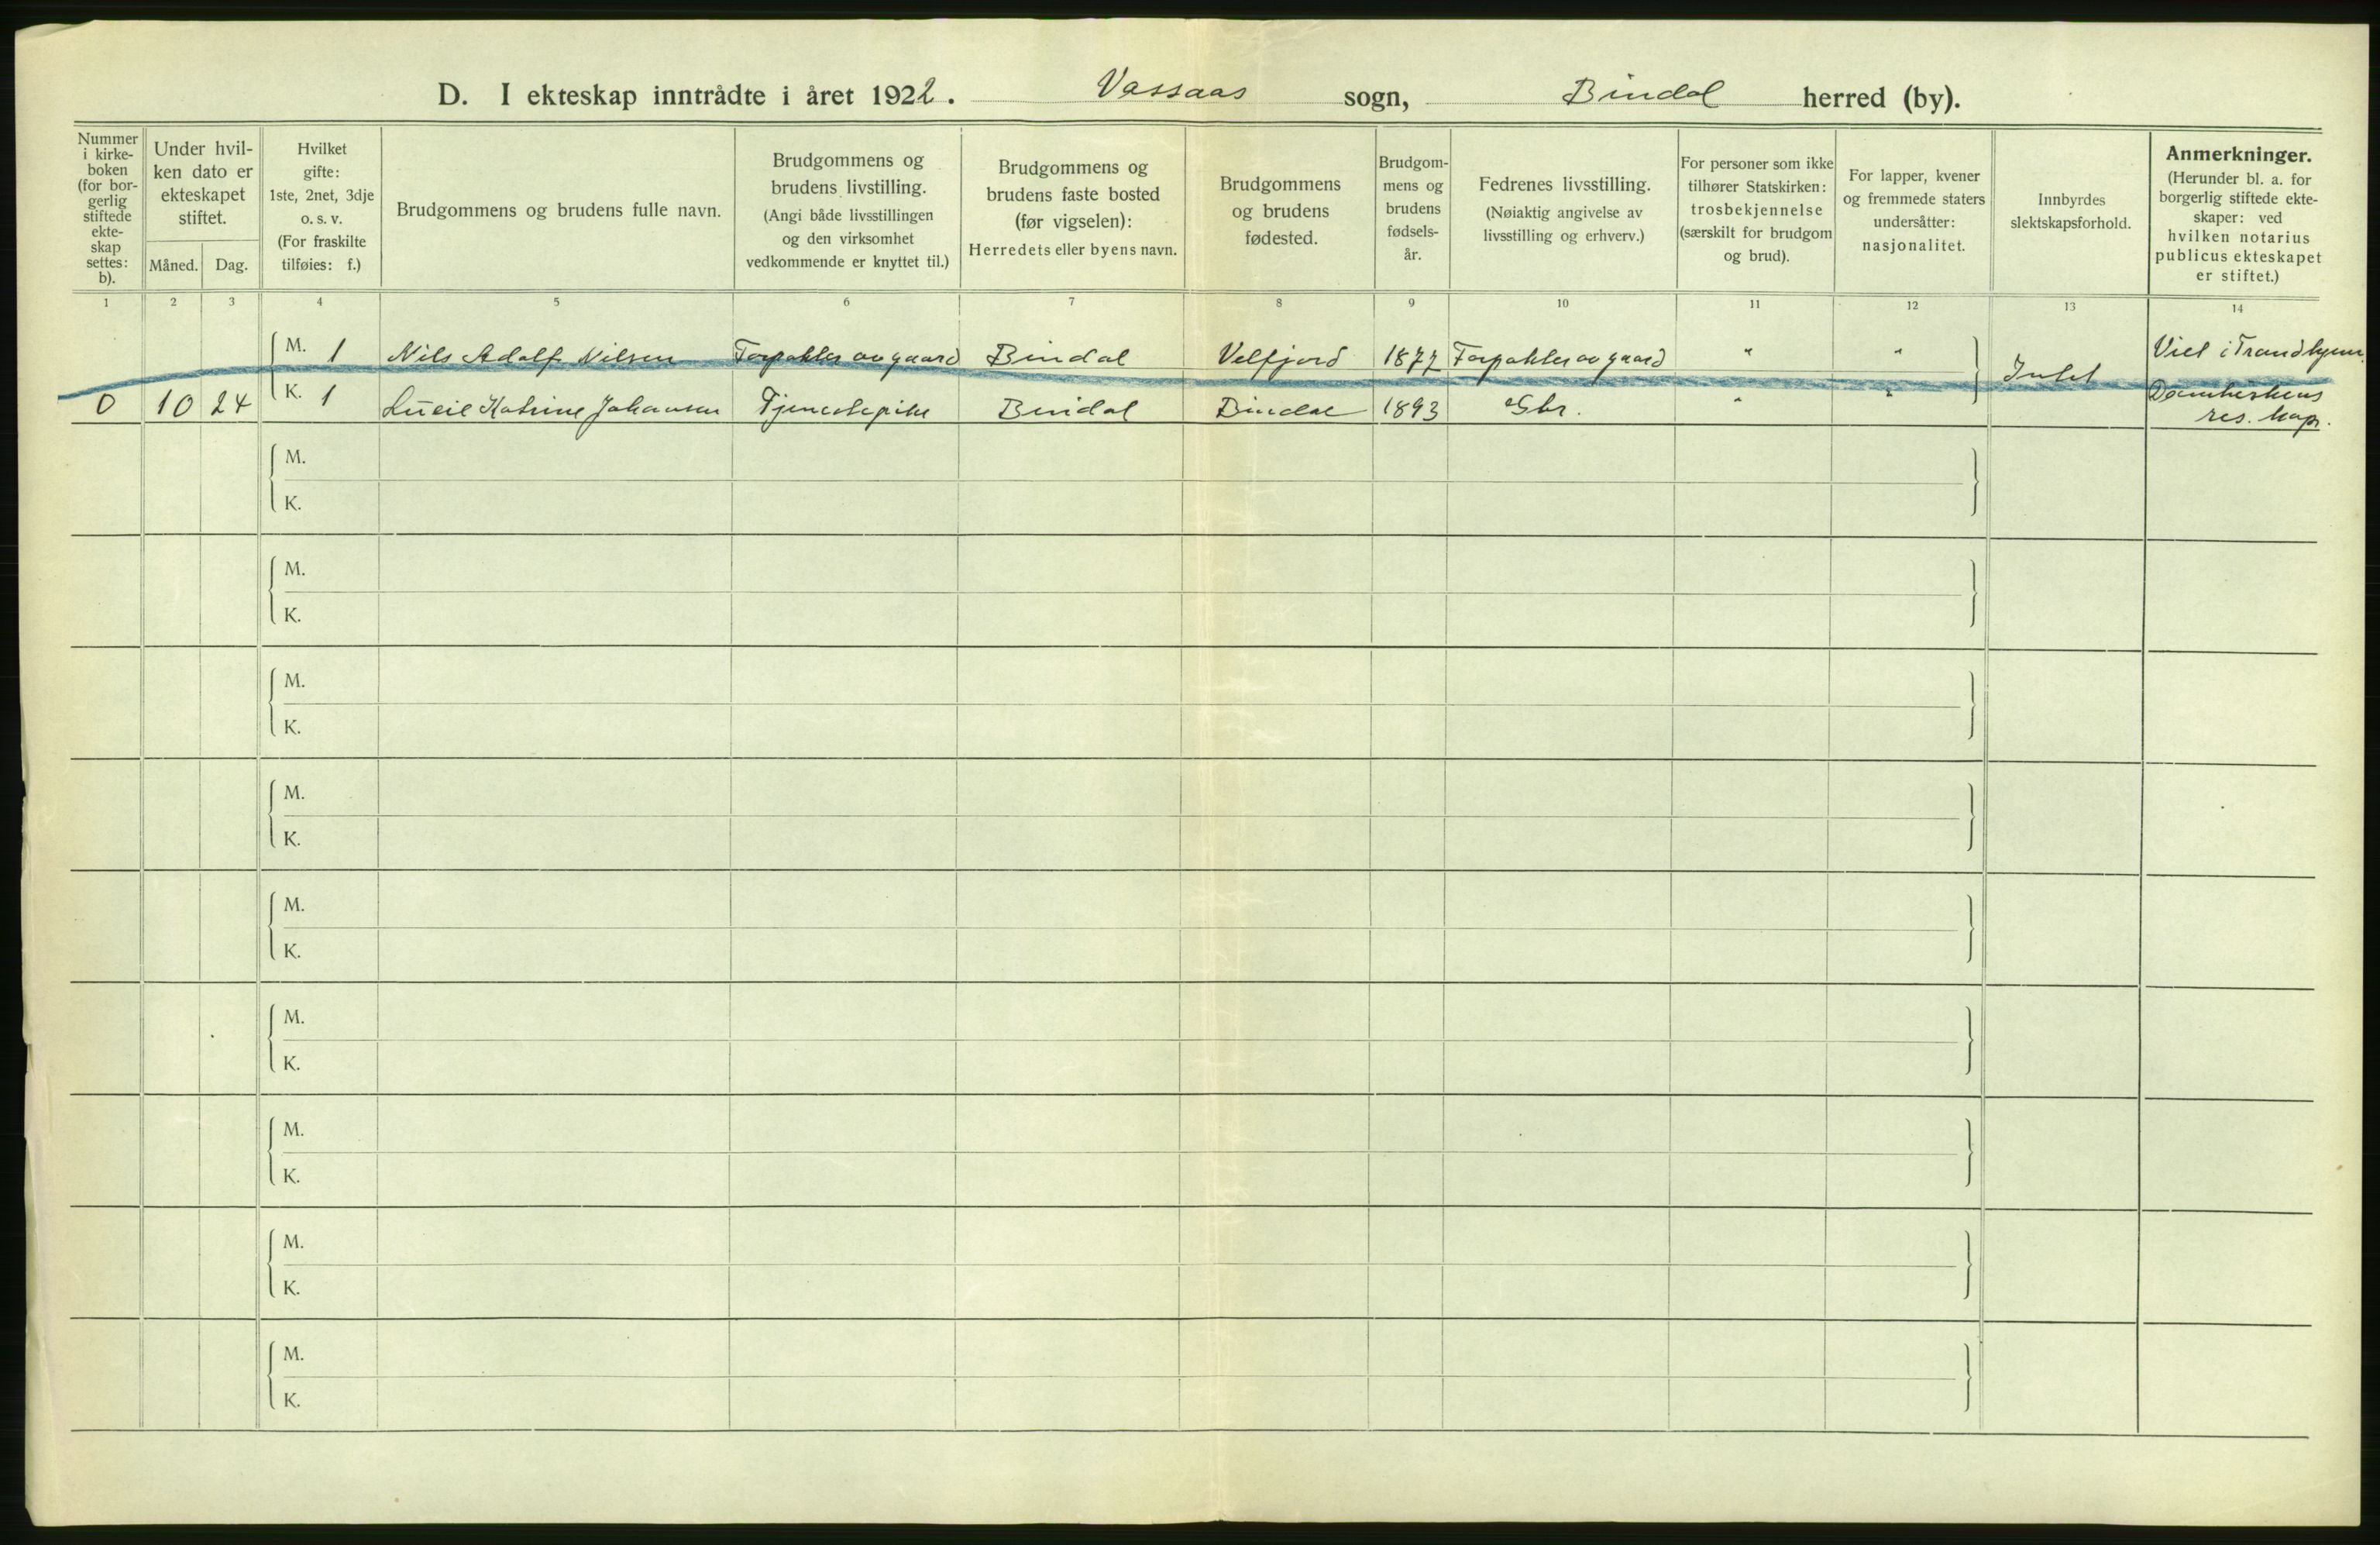 D. I ekteskap inntrådte i året 1922. Vassaas sogn, Bindal herred (by).
Nummer
i kirke-
boken
(for bor-
gerlig
stiftede
ekte-
skap
settes:
b).
Under hvil-
ken dato er
ekteskapet
stiftet.
Måned. Dag.
Hvilket
gifte:
1ste, 2net, 3dje
o. s. v.
(For fraskilte
tilføies: f.)
Brudgommens og brudens fulle navn.
Brudgommens og
brudens livstilling.
(Angi både livsstillingen
og den virksomhet
vedkommende er knyttet til.)
Brudgommens og
brudens faste bosted
(før vigselen):
Herredets eller byens navn.
Brudgommens
og brudens
fødested.
Brudgom-
mens og
brudens
fødsels-
år.
Fedrenes livsstilling.
(Nøiaktig angivelse av
livsstilling og erhverv.)
For personer som ikke
tilhører Statskirken:
trosbekjennelse
(særskilt for brudgom
og brud).
For lapper, kvener
og fremmede staters
undersåtter:
nasjonalitet.
Innbyrdes
slektskapsforhold.
Anmerkninger.
(Herunder bl. a. for
borgerlig stiftede ekte-
skaper: ved
hvilken notarius
publicus ekteskapet
er stiftet.)
1 2 3 4 5 6 7 8 9 10 11 12 13 14
M. 1 Nils Adolf Nilsen Forpakter av gaard Bindal Velfjord 1877 Forpakter av gaard " " Viet i Trondhjem
Intet
0 10 24 K. 1 Lucie Katrine Johansen Tjenestepike Bindal Bindal 1893 Gbr. " " Domkirkens
res. kap.
M.
K.
M.
K.
M.
K.
M.
K.
M.
K.
M.
K.
M.
K.
M.
K.
M.
K.